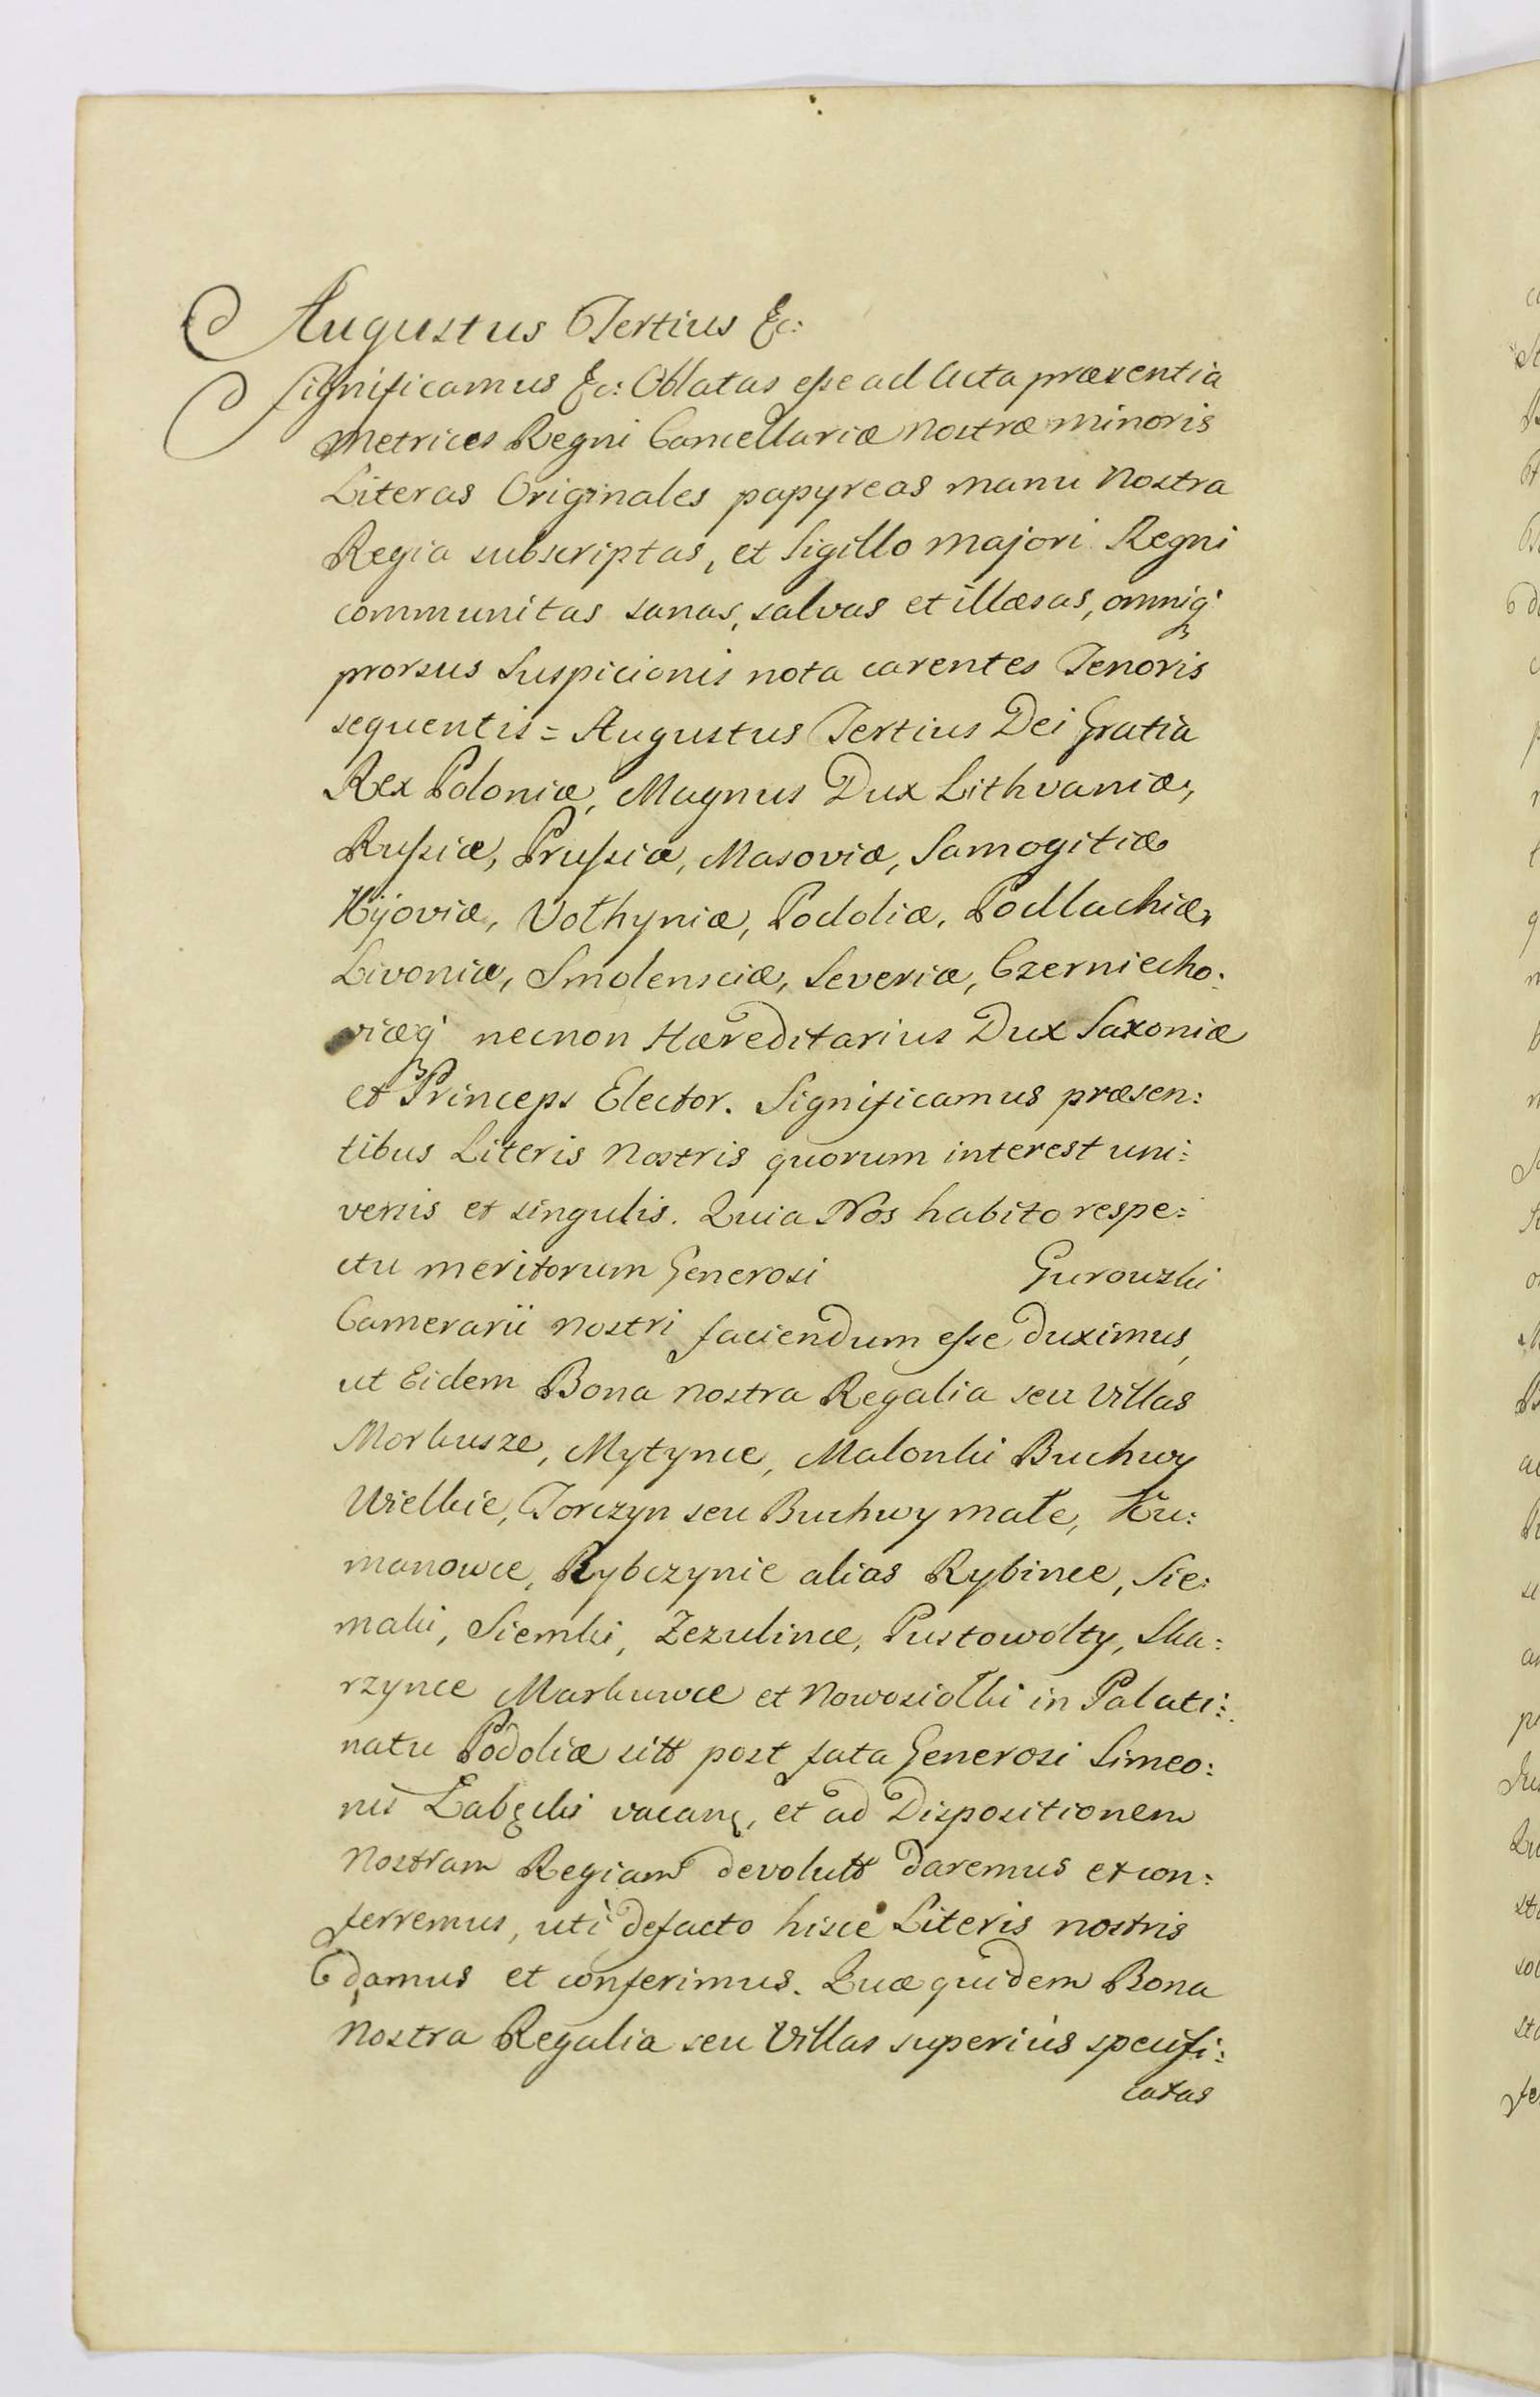 Augustus Tertius &c:
Significamus &c: Oblatas esse ad Acta præsentia
Metrices Regni Cancellariæ Nostræ minoris
Literas Originales papyreas manu Nostra
Regia subscriptas, et Sigillo majori Regni
communitas sanas, salvas et illæsas, omniq;
prorsus Suspicionis nota carentes Tenoris
sequentis = Augustus Tertius Dei Gratia
Rex Poloniæ, Magnus Dux Lithvaniæ,
Russiæ, Prussiæ, Masoviæ, Samogitiæ
Kijoviæ, Volhyniæ, Podoliæ, Podlachiæ,
Livoniæ, Smolensciæ, Severiæ, Czerniecho:
viæq; necnon Hæreditarius Dux Saxoniæ
et Princeps Elector. Significamus præsen:
tibus Literis Nostris quorum interest uni:
versis et singulis. Quia Nos habito respe:
ctu meritorum Generosi Gurowski
Camerarii nostri faciendum esse duximus,
ut Eidem Bona nostra Regalia seu Villas
Morkusze, Mytynce, Malonki Buchwy
Wielkie, Torczyn seu Buchwy małe, Ku:
manowce, Rybczynie alias Rybince, Sie:
maki, Siemki, Zezulince, Pustowolty, Ska:
rzynce Markuwce et Nowosiołki in Palati:
natu Podoliæ sitt post fata Generosi Simeo:
nis Łabęcki vacan, et ad Dispositionem
Nostram Regiam devolutt daremus et con:
ferremus, uti defacto hisce Literis nostris
damus et conferimus. Quæ quidem Bona
Nostra Regalia seu Villas superius specifi:
catas